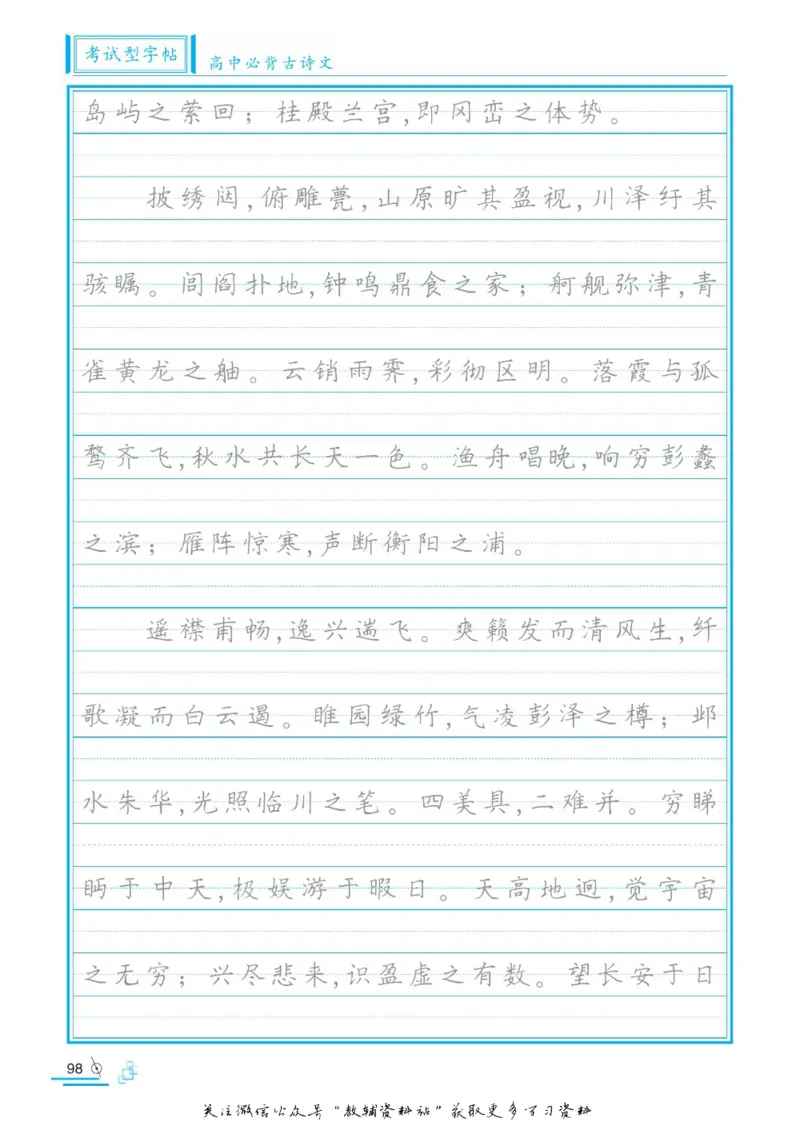 考试型字帖
高中必背古诗文
岛屿之萦回；桂殿兰宫,即冈峦之体势。
披绣闼,俯雕甍,山原旷其盈视,川泽纡其
骇瞩。闾阎扑地,钟鸣鼎食之家；舸舰弥津,青
雀黄龙之舳。云销雨霁,彩彻区明。落霞与孤
鹜齐飞,秋水共长天一色。渔舟唱晚,响穷彭蠡
之滨；雁阵惊寒,声断衡阳之浦。
遥襟甫畅,逸兴遄飞。爽籁发而清风生,纤
歌凝而白云遏。睢园绿竹,气凌彭泽之樽；邺
水朱华,光照临川之笔。四美具,二难并。穷睇
眄于中天,极娱游于暇日。天高地迥,觉宇宙
之无穷；兴尽悲来,识盈虚之有数。望长安于日
98
关注微信公众号“教辅资料站”获取更多学习资料